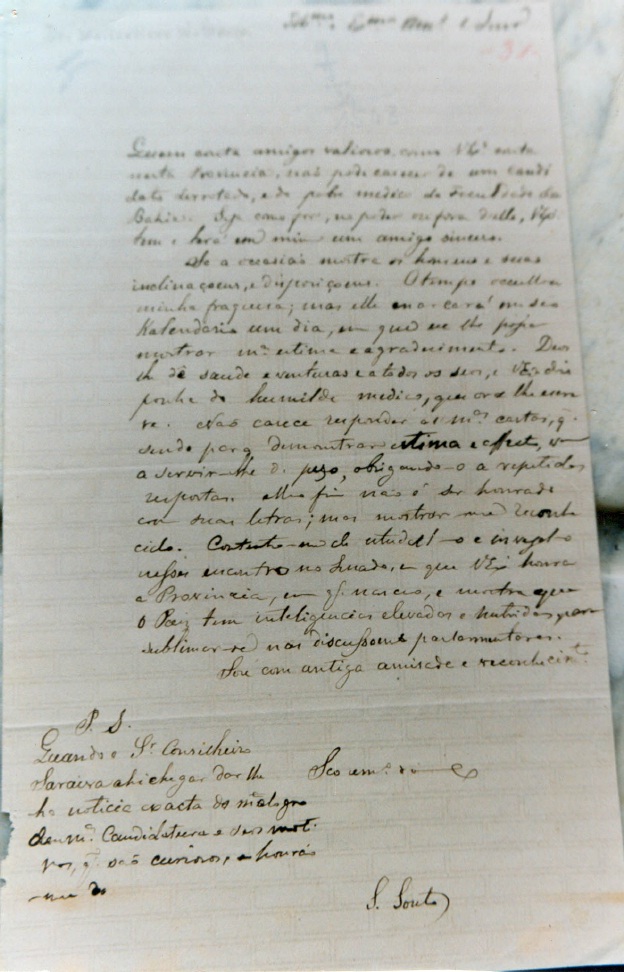 Exmo. Amo. e Snr
31
Quem conta amigos valiosos, como VEx.ª conta
nesta Provincia, não pode carecer de um candi
dato derrotado, e do pobre medico da Faculdade da
Bahia. Seja como for, no poder ou fora d'elle, VEx.ª
tem e terá em mim um amigo sincero.
Se a occasião mostra os homens e suas
inclinaçoens, e disposiçoens. O tempo occulta
minha fraqueza; mas elle marcará no seu
Kalendario um dia, em que eu lhe possa
mostrar mª estima e agradecimento. Deos
lhe dê saude e venturas e a todos os seos, e VEx.ª dis
ponha do humilde medico, que ora lhe escre
ve. Não carece responder ás mªs cartas, q.
sendo para demonstrar estima e affecto,
a servir-lhe de pezo, obrigando-o a repetidas
respostas. meu fim não é ser honrado
com suas letras; mas mostrar-me reconhe
cido. Contento-me de estudal-o e
nesses encontros no Senado, em que VEx.ª honra
a Provincia, em q. nasceo, e mostra que
o Paiz tem inteligencias elevadas e nutridas para
sublimar-se nas discussoens parlamentares.
Sou com antiga amisade e reconhecimtº
P. S.
Quando o Sr. Conselheiro
Saraiva ahi chegar dar lhe
ha noticia exacta do malogro
de mª Candidatura e seos moti
vos, q. são curiosos, e honrão
-me
S. Souto